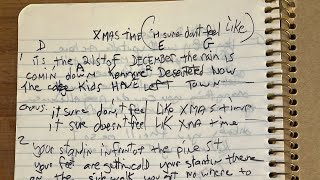 XMAS TIME (it sure don't feel like)
D E G
1 it is the 21st of DECEMBER the rain is
A
comin down Deserted Now
The Kids HAVE Left Town
Chorus: it sure don't feel Like XMAS time
it sure doesn't feel LIK Xma time
2 your standin infront of the pine st
your feet are gettin cold your standin there
on the side walk you got no where to